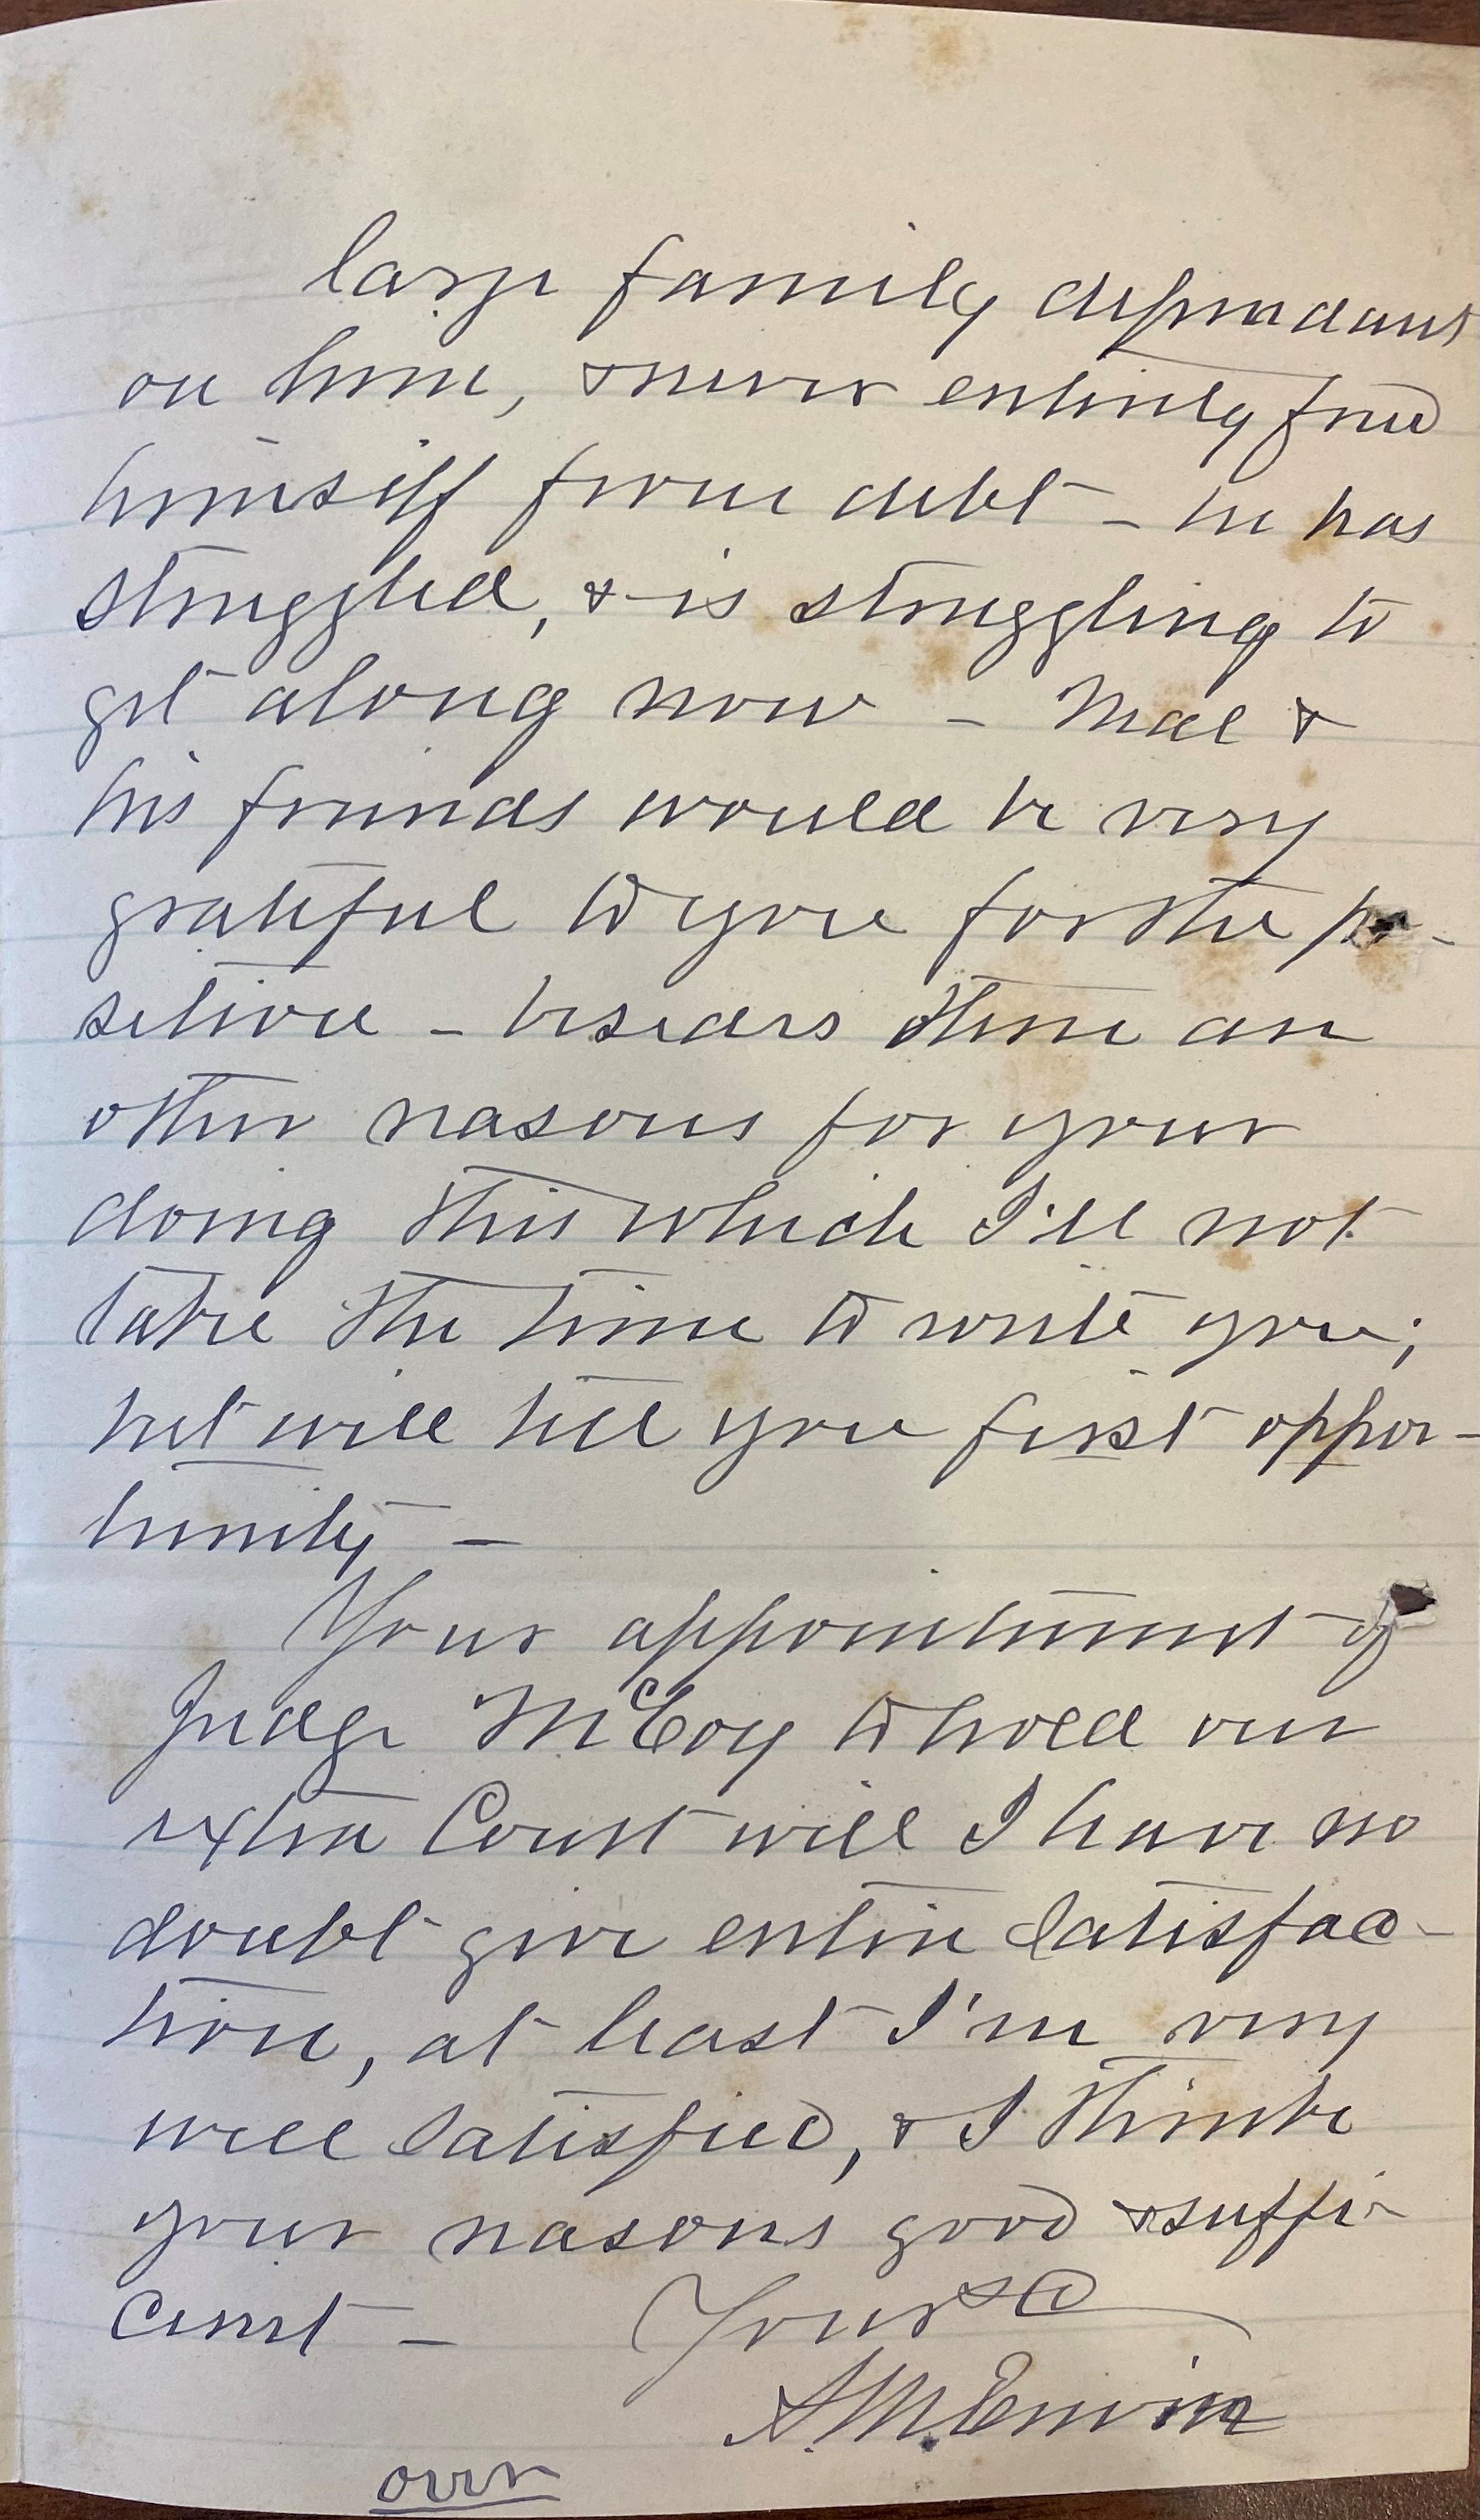 large family dependant
on him, & never entirely freed
himself from debt - he has
struggled, & is struggling to
get along now - Mac &
his friends would be very
grateful to you for the po-
sition - besides there are
other reasons for your
doing this which I'll not
take the time to write you;
but will tell you first oppor-
tunity -
Your appointment of
Judge McCoy to hold our
extra Court will I have no
doubt give entire satisfac-
tion, at least I'm very
well satisfied, & I think
your reasons good & suffi-
cient - Yours &c
Erwin
over